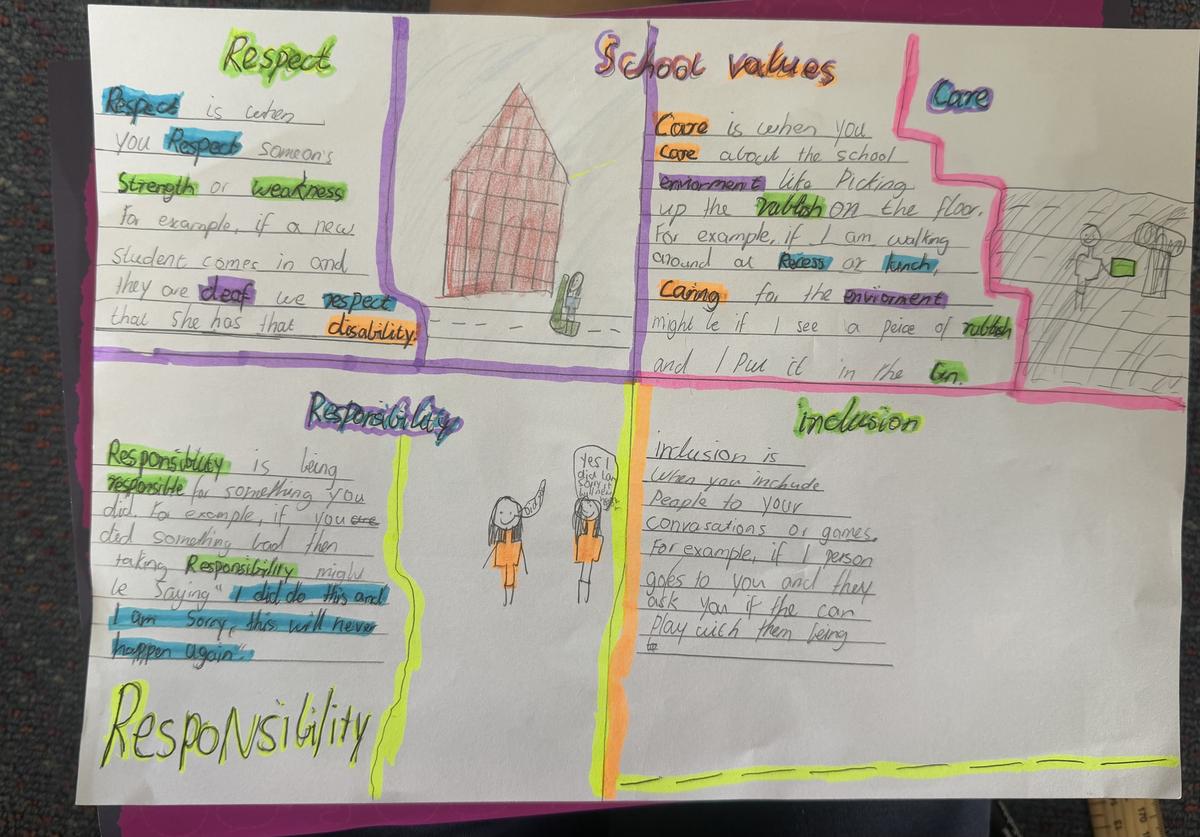 School values
Respect
Respect is when
you Respect someon's
Strength or weakness
For example, if a new
student comes in and
they are deaf we respect
that she has that disability.
Care
Care is when you
Care about the school
enviorment like Picking
up the rubbish on the floor.
For example, if I am walking
around at Recess or lunch,
Caring for the enviorment
might be if I see a peice of rubbish
and I Put it in the bin.
Responsibility
Responsiblity is being
responsible for something you
did. For example, if you are
did something bad then
taking Responsibility might
be Saying "I did do this and
I am Sorry, this will never
happen again."
Responsibility
Yes I
did I am
sorry it
will never
inclusion
inclusion is
when you include
People to your
convasations or games.
For example, if 1 person
goes to you and they
ask you if the can
Play with them being